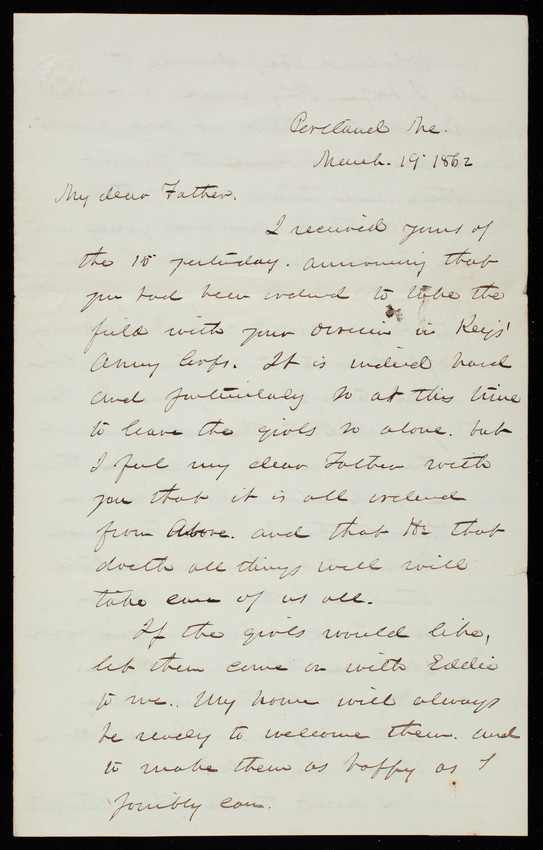 Portland Me.
March. 19 1862
My dear Father.
I received yours of
the 15 yesterday. announcing that
you had been ordered to take the
field with your division in Keys'
Army Corps. It is indeed hard
and particularly so at this time
to leave the girls so alone. but
I feel my dear Father with
you that it is all ordered
from Above. and that He that
doeth all things well will
take care of us all.
If the girls would like,
let them come on with Eddie
to me. My home will always
be ready to welcome them. and
to make them as happy as I
possibly can.